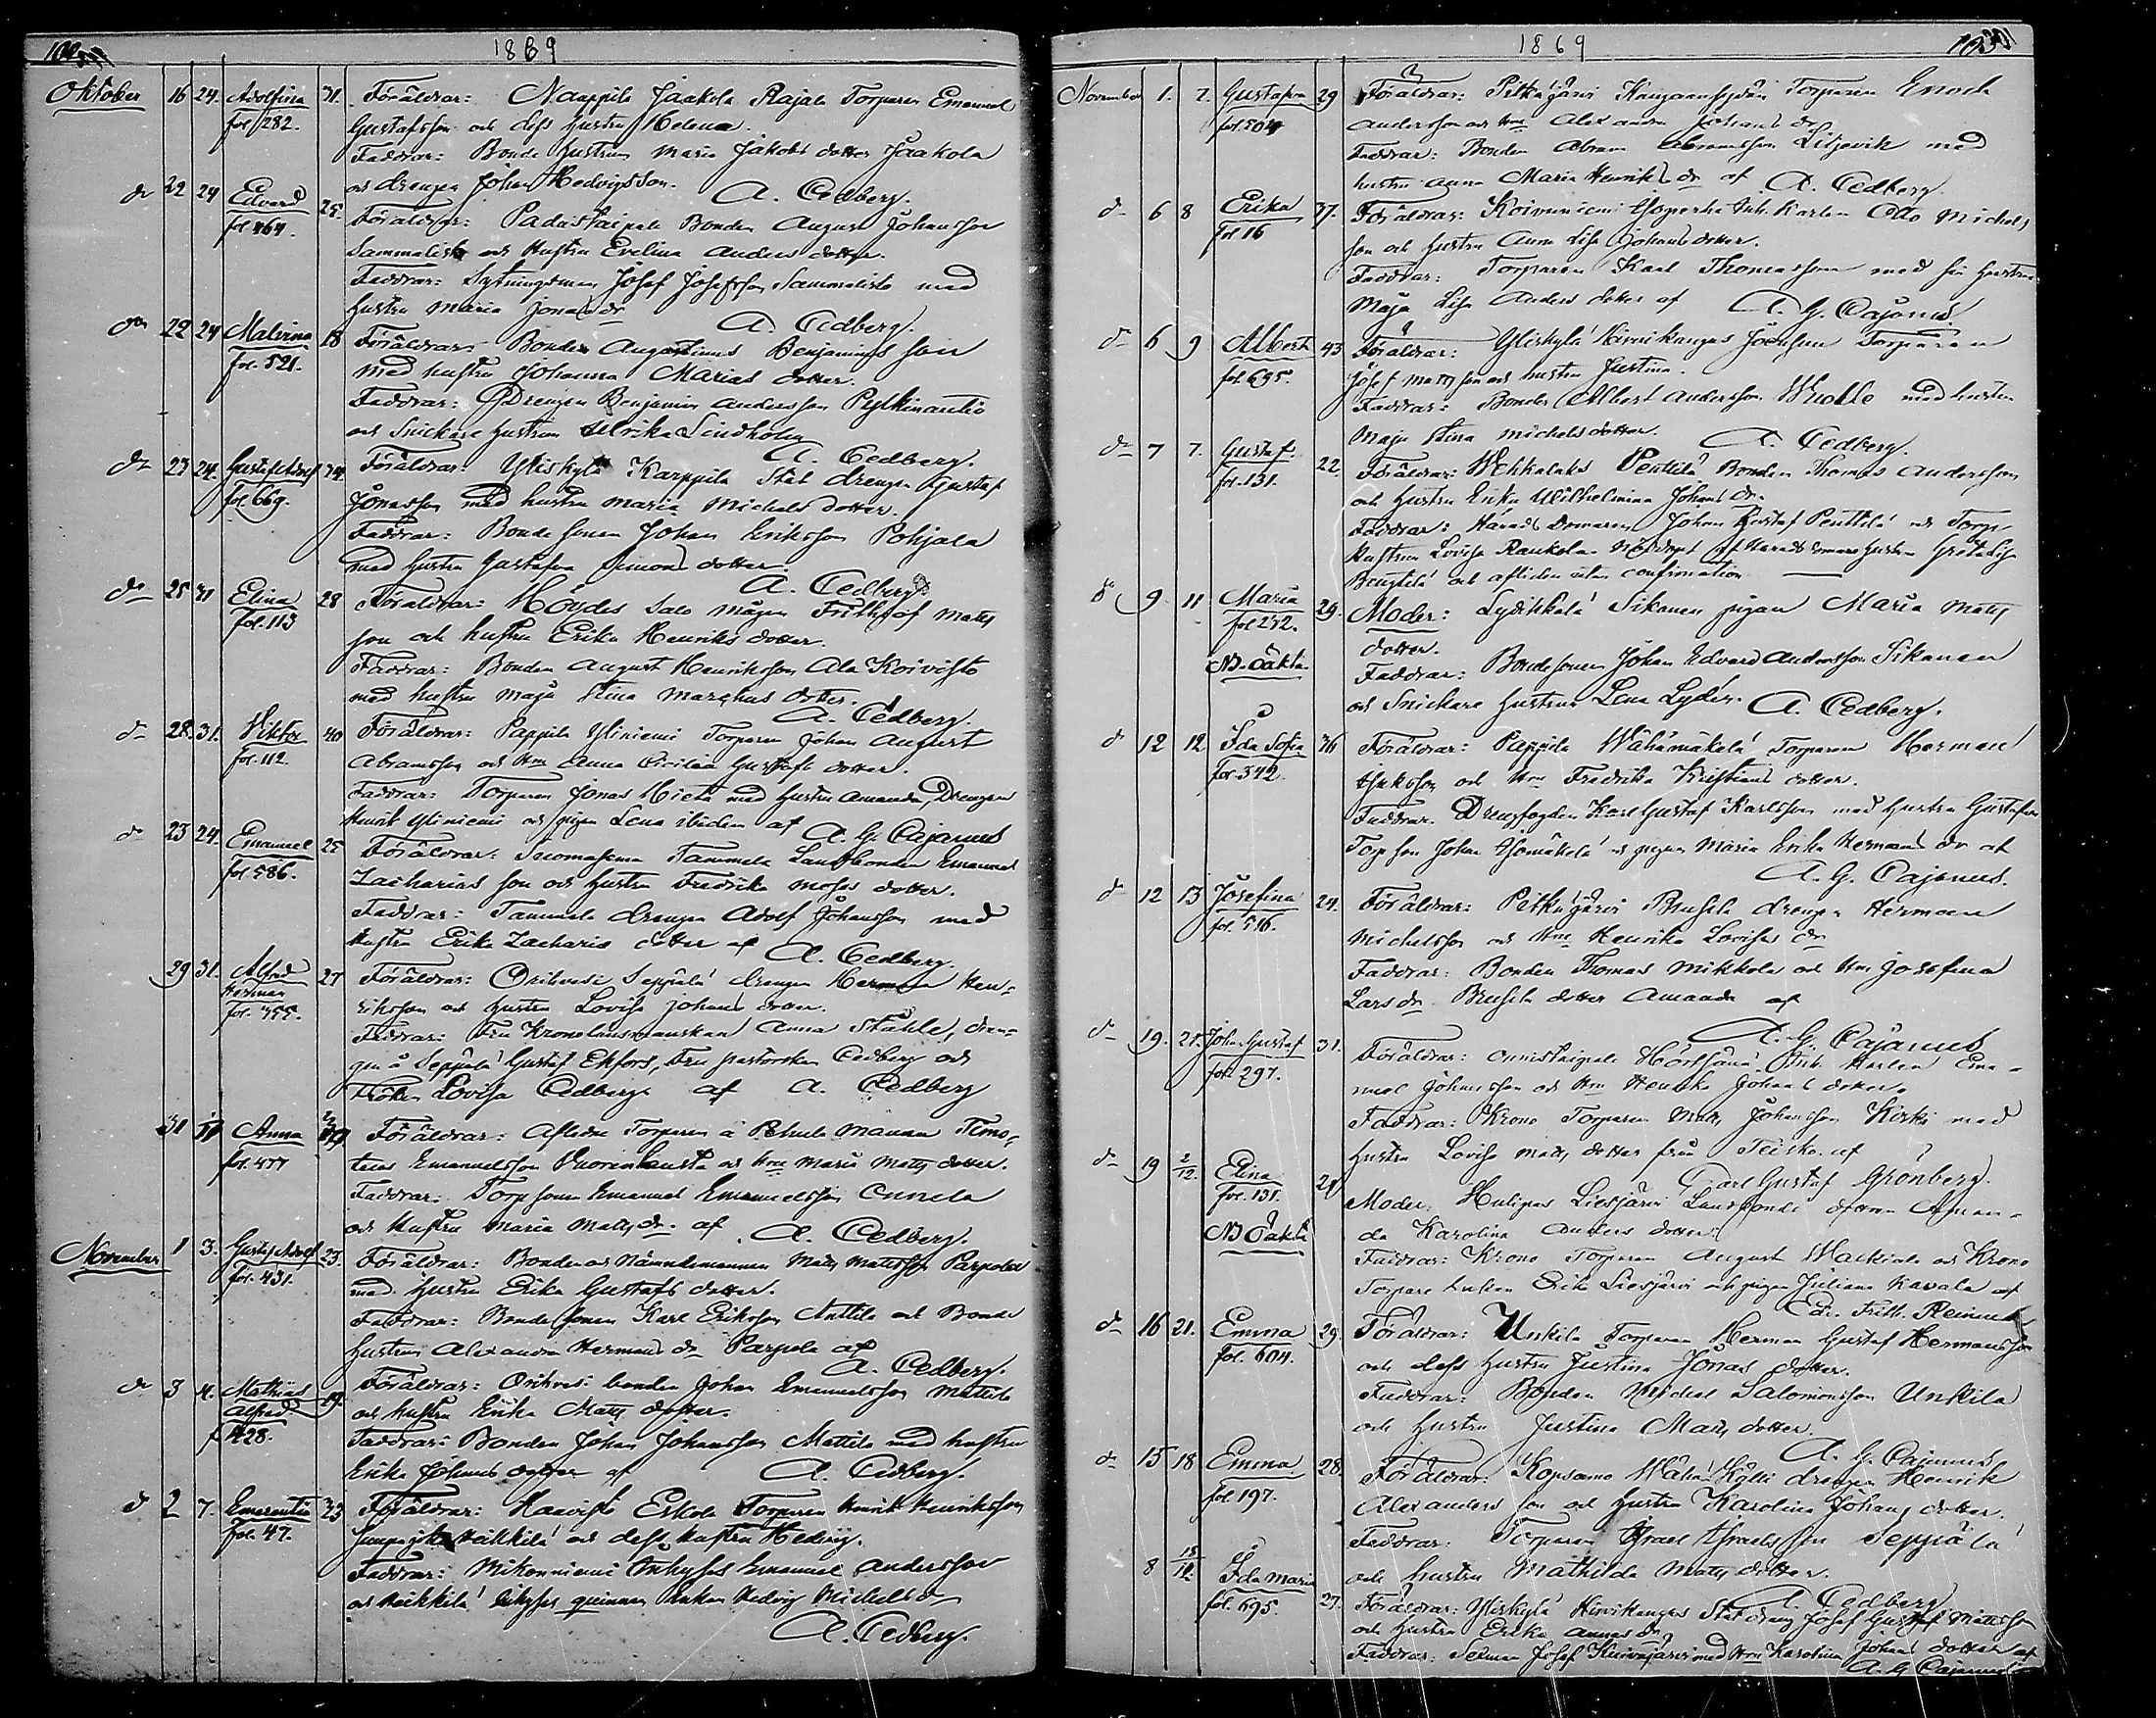 1869
Oktober 16 24. Adolfina fol 282. 31. Föräldrar: Naappila Jaakola Rajala Torparen Emanuel
Gustafsson och dess hustru Helena.
Faddrar: Bonde hustrun Maria Jakobs dotter Jaakola
och drengen Johan Hedvigsson. A. Cedberg.
dr 22 24 Edvard fol 464. 25. Föräldrar: Padustaipale Bonden August Johansson
Sammalisto och Hustru Evelina Anders dotter.
Faddrar: Sytningsman Josef Josefsson Sammalisto med
hustru Maria Jonas dr A. Cedberg.
22 24 Malvina fol. 521. 18 Föräldrar: Bonden Augustinus Benjamins son
med hustru Johanna Marias dotter.
Faddrar: Drengen Benjamin Andersson
och Snickare hustrun Ulrika Lindholm
A. Cedberg.
dr 23 24. Gustaf Adolf fol. 669. 34. Föräldrar: Yliskylä Karppila Stat drengen Gustaf
Jonasson med hustru Maria Michels dotter.
Faddrar: Bonde sonen Johan Eriksson Pohjala
med hustru Gustafva Simons dotter.
A. Cedberg
dr 25 31 Elina fol. 113 28 Föräldrar: Salo mågen Frithiof Matts
son och hustru Erika Henriks dotter.
Faddrar: Bonden August Henriksson Ala Koivisto
med hustru Maja Stina Marckus dotter.
A. Cedberg.
dr 28. 31. Viktor fol. 112. 40 Föräldrar: Pappila Yliniemi Torparen Johan August
Abramsson och Hru Anna Cicilia Gustafs dotter.
Faddrar: Torparen Jonas Hieta med hustru Amanda, Drengen
Henrik Yliniemi och pigan Lena ibidem af A. G. Cajanus
dr 23 24. Emanuel fol 586. 25 Föräldrar: Tammela Landbonden Emanuel
Zacharias son och hustru Fredrika Moses dotter.
Faddrar: Tammela drengen Adolf Johansson med
hustru Erika Zacharias dotter af A. Cedberg.
29 31. Alfred Herman fol. 355. 27 Föräldrar: Orihvesi Seppälä drengen Herman Hen-
riksson och hustru Lovisa Johans dotter.
Faddrar: Fru Kronolänsmanskan Anna Ståhle, dren-
gen å Seppälä Gustaf Ekfors, Fru pastorskan Cedberg och
Fröken Lovisa Cedberg af A. Cedberg
31 Anna fol. 477 Föräldrar: Aflidne Torparen å Manna Timo-
teus Emanuelsson och Hru Maria Matts dotter.
Faddrar: Torp sonen Emanuel Emanuelsson Onnela
och Hustru Maria Matts dr. af A. Cedberg.
November 1 3. Gustaf Adolf fol. 431. 23. Föräldrar: Bonden och Nämndemannen Matts Mattsson Parpola
med hustru Erika Gustafs dotter.
Faddrar: Bonde sonen Karl Eriksson Anttila och Bonde
hustrun Alexandra Hermans dr Parpola af
A. Cedberg.
dr 3 4. Mathias Alfred f 428. 29. Föräldrar: Orihvesi bonden Johan Emanuelsson Mattila
och hustru Erika Matts dotter.
Faddrar: Bonden Johan Johansson Mattila med hustru
Erika Johans dotter af A. Cedberg.
d 2 7. Emerentia fol. 47. 33 Föräldrar: Haavisto Eskola Torparen Henrik Henriksson
Heikkilä och dess hustru Hedvig.
Faddrar: Mikonniemi Inhyses Emanuel Andersson
och Heikkilä Inhyses quinnan Enkan Hedvig Michels dr
A. Cedberg.
1869
November 1. 7. Gustafva fol. 504 29 Föräldrar: Pitkäjärvi Kangaansydän Torparen Enoch
Andersson och Hru Alexandra Johans dr
Faddrar: Bonden Abram Abramsson Liljevik med
hustru Anna Maria Henriks dr af A. Cedberg.
d 6 8 Erika fol 16 37. Föräldrar: Koivuniemi Inh. Karlen Otto Michels
son och hustru Anna Lisa Johans dotter.
Faddrar: Torparen Karl Thomasson med sin hustru
Maja Lisa Anders dotter af A. G. Cajanus
d 6 9 Albert fol. 695. 43 Föräldrar: Yliskylä Hirvikangas Torparen
Josef Mattsson och hustru Justina.
Faddrar: Bonden Albert Andersson Wuolle med hustru
Maja Stina Michels dotter. A. Cedberg.
dr 7 7. Gustaf fol. 131. 22. Föräldrar: Wehkalaks Penttilä Bonden Thomas Andersson
och hustru Erika Wilhelmina Johans dr
Faddrar: Härads Domaren Johan Gustaf Penttilä och Torp
hustrun Lovisa Raukola. Nöddöpt af Härads domare hustrun Greta Lisa
Bengtilä och afliden utan confirmation
9 11 Maria fol 272. NB Oäkta 29. Moder: Lydikkälä Sikanen pigan Maria Matts
dotter.
Faddrar: Bondesonen Johan Edvard Andersson Sikanen
och Snickare hustrun Lena Lydén. A. Cedberg.
d 12 12 Ida Sofia fol. 342. 36 Föräldrar: Pappila Wähämäkelä Torparen Herman
Isaksson och Hru Fredrika Kristians dotter.
Faddrar. Drengfogden Karl Gustaf Karlsson med hustru Gustafva
Torp son Johan Isomäkelä och pigan Maria Erika Hermans dr af
A. G. Cajanus.
d 12 13 Josefina fol. 516. 24. Föräldrar: Pitkäjärvi Brusila drengen Herman
Michelsson och Hru Henrika Lovisas dr
Faddrar: Bonden Thomas Mikkola och Hru Josefina
Lars dr Brusila dotter Amanda af
A. G. Cajanus
d 19. 21. Johan Gustaf fol. 297. 31. Föräldrar: Onnistaipale Inh. Karlen Ema-
nuel Johansson och Hru Henrika Johans dotter.
Faddrar: Krono Torparen Matts Johansson Kirki med
hustru Lovisa Matts dotter från Teisko. af
Carl Gustaf Grönberg.
d 19 2/12. Elina fol. 131. NB Oäkta 21 Moder: Hulipas Liesjärvi Landbonde dottren Aman-
da Karolina Anders dotter.
Faddrar: Krono Torparen August och Krono
Torpare Enkan Erika Liesjärvi och pigan Juliana Kavala af
Edv. Frith. Reinius
d 16 21. Emma fol. 604. 29. Föräldrar: Unkila Torparen Herman Gustaf Hermansson
och dess hustru Justina Jonas dotter.
Faddrar: Bonden Michel Salomonsson Unkila
och hustru Justina Matts dotter.
A. G. Cajanus
d 15 18 Emma fol. 197. 28. Föräldrar: Kopsamo Wähä Kölli drengen Henrik
Alexanders son och hustru Karolina Johans dotter.
Faddrar: Torparen Israel Israelsson Seppälä
och hustru Mathilda Matts dotter.
A. Cedberg
8 Ida Maria fol. 695. 27. Föräldrar: Yliskylä Hirvikangas Stat dreng Josef Gustaf Mattsson
och hustru Erika Annas dr
Faddrar: Josef Kuivajärvi med Hru Karolina Johans dotter af
A. G. Cajanus